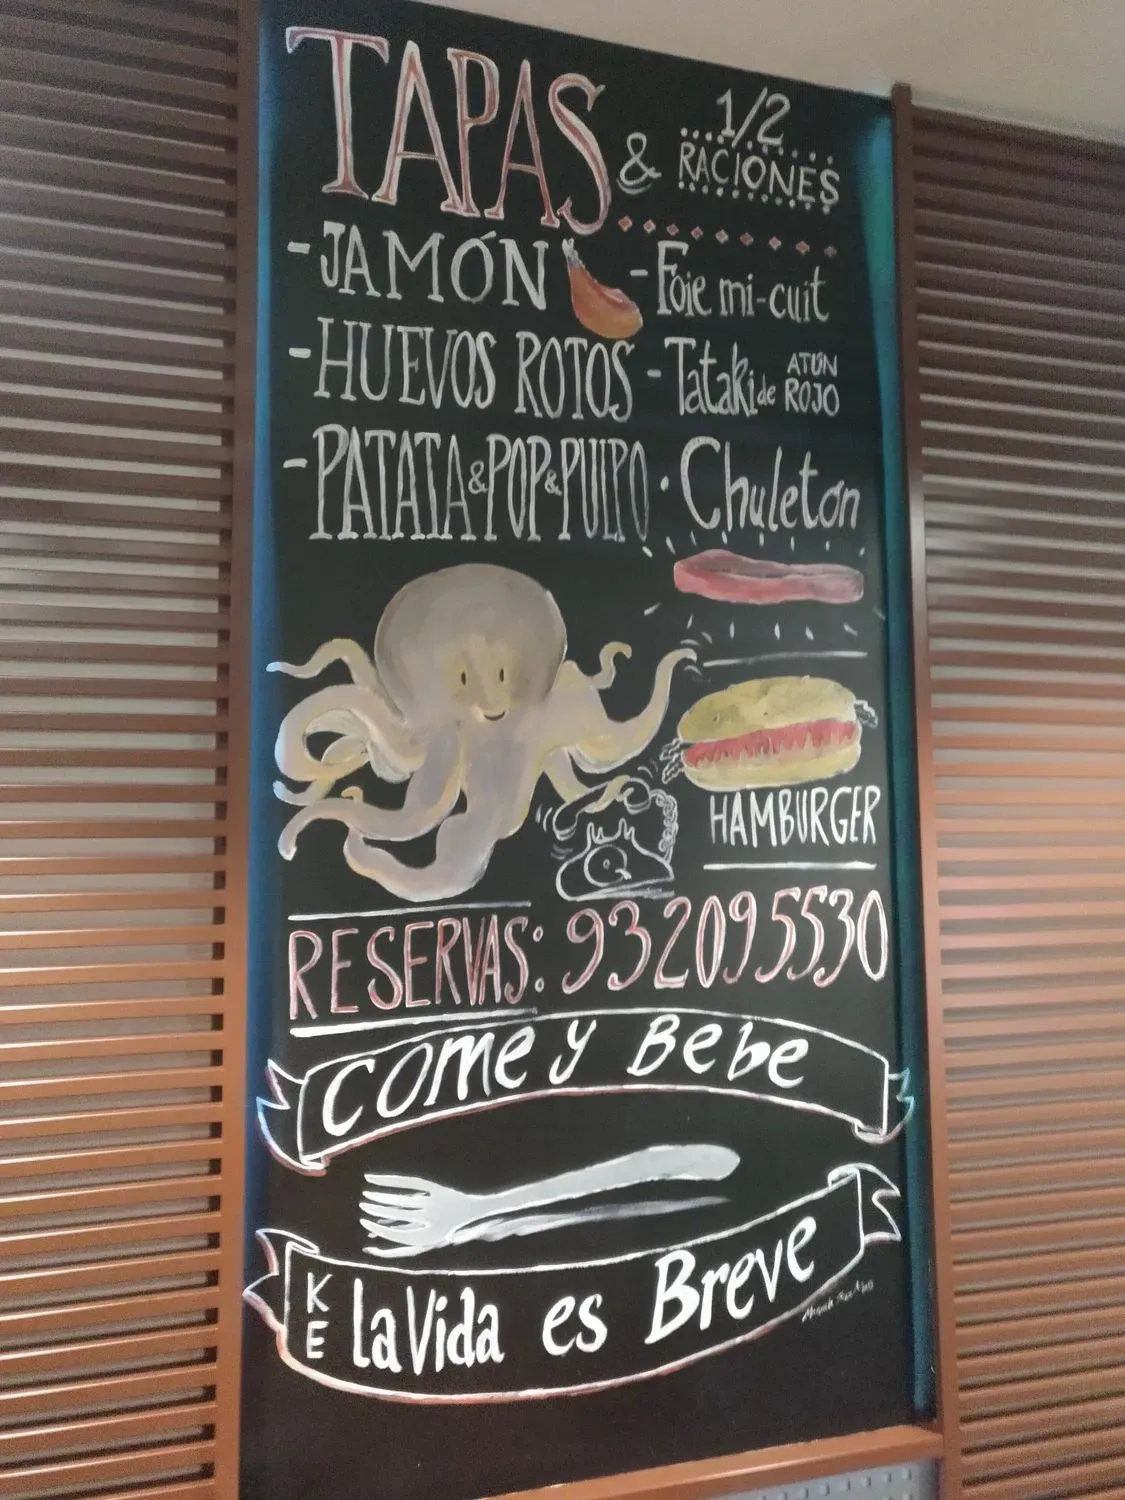 TAPAS & 1/2 RACIONES
-JAMÓN
-HUEVOS ROTOS
-PATATA&POP&PULPO
-Foie mi-cuit
-Tataki de ATÚN ROJO
·Chuletón
HAMBURGER
RESERVAS: 932095530
COME y BeBe
KE la Vida es Breve